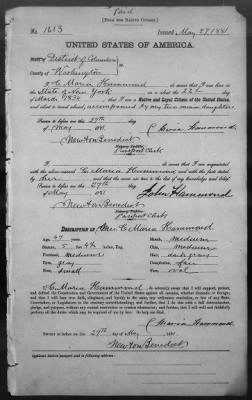 Paid
[FORM FOR NATIVE CITIZEN.]
No. 1613 Issued May 27, 1881
UNITED STATES OF AMERICA.
District of Columbia
County of Washington
I, C. Maria Hammond, do swear that I was born in the
State of New York, on or about the 22d day of
March 1834; that I am a Native and Loyal Citizen of the United States,
and about to travel abroad, accompanied by my two minor daughters
Sworn to before me, this 27th day
of May 1881
C. Maria Hammond
Newton Benedict
Notary Public.
Passport Clerk
I, do swear that I am acquainted
with the above-named C. Maria Hammond and with the facts stated
by her and that the same are true to the best of my knowledge and belief.
Sworn to before me, this 27th day
of May 1881
John Hammond
Newton Benedict
Notary Public.
Passport Clerk
DESCRIPTION OF Mrs. C. Maria Hammond
Age, 47 years. Mouth, medium
Stature, 5 feet, inches, Eng. Chin, medium
Forehead, medium Hair, dark gray
Eyes, gray Complexion, fair
Nose, small Face, oval
I, C. Maria Hammond, do solemnly swear that I will support, protect,
and defend the Constitution and Government of the United States against all enemies, whether domestic or foreign,
and that I will bear true faith, allegiance, and loyalty to the same, any ordinance, resolution, or law of any State,
Convention, or Legislature to the contrary notwithstanding; and further, that I do this with a full determination,
pledge, and purpose, without any mental reservation or evasion whatsoever; and further, that I will well and faithfully
perform all the duties which may be required of me by law: So help me God.
C. Maria Hammond
Sworn to before me, this 27th day of May, 1881.
Newton Benedict
Applicant desires Passport sent to following address: